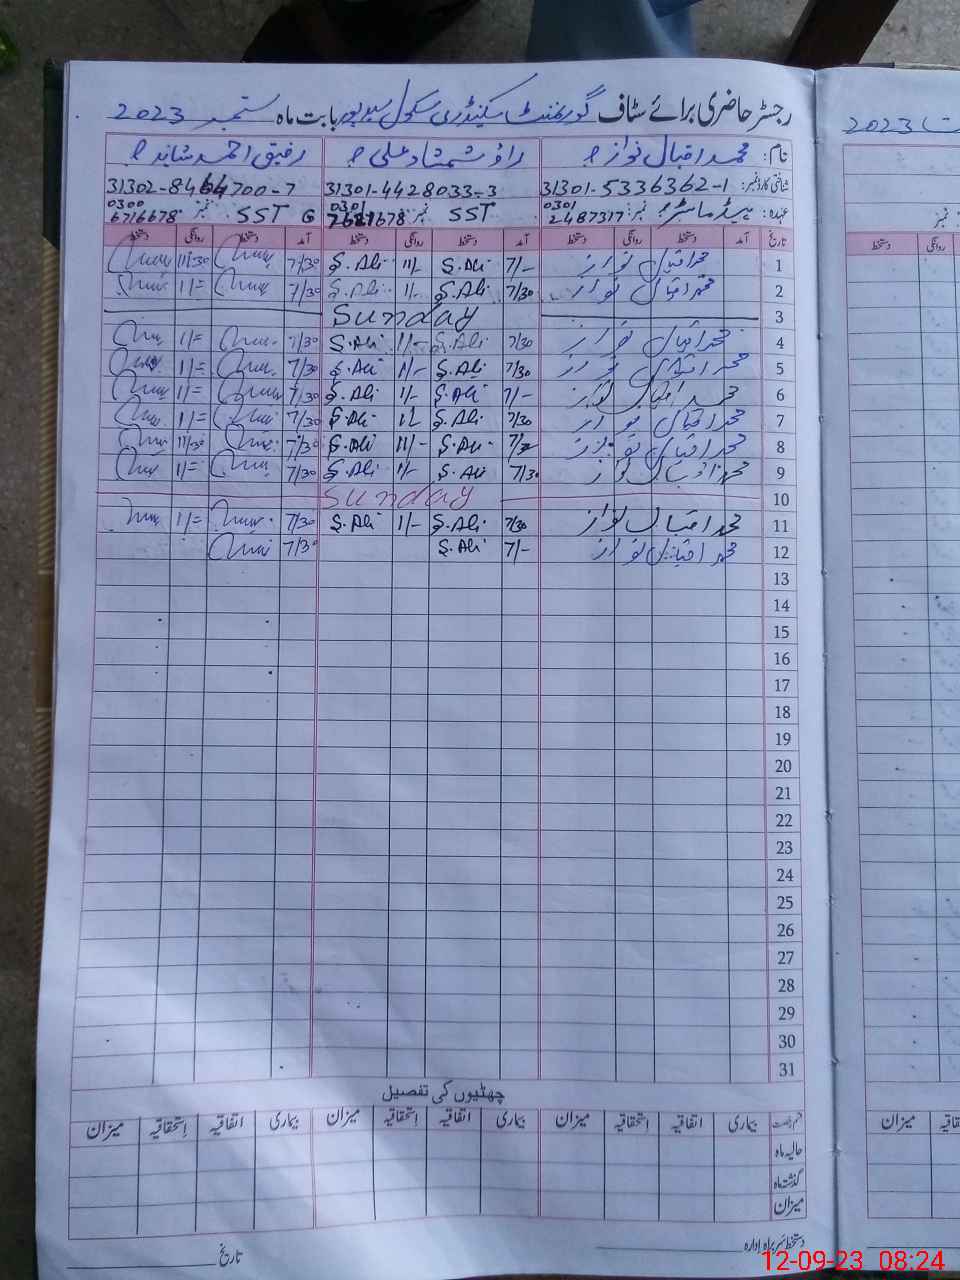 رجسٹر حاضری برائے سٹاف گورنمنٹ سیکنڈری سکول بابت ماہ ستمبر 2023
نام: محمد اقبال نواز راؤ شمشاد علی رفیق احمد شاہد
شناختی کارڈ نمبر: 31301-5336362-1 31301-4428033-3 31302-8464700-7
عہدہ: ہیڈ ماسٹر نمبر: 0301 2487317 SST نمبر 0301 7681678 SST G نمبر 0300 6716678
تاریخ آمد دستخط روانگی دستخط آمد دستخط روانگی دستخط آمد دستخط روانگی دستخط
1 محمد اقبال نواز 7/- S.Ali 11/- S.Ali 7/30 11/30
2 محمد اقبال نواز 7/30 S.Ali 1/- S.Ali 7/30 1/=
3 Sunday
4 محمد اقبال نواز 7/30 S.Ali 1/- S.Ali 7/30 1/=
5 محمد اقبال نواز 7/30 S.Ali 1/- S.Ali 7/30 1/=
6 محمد اقبال نواز 7/- S.Ali 1/- S.Ali 7/30 1/=
7 محمد اقبال نواز 7/30 S.Ali S.Ali 7/30 1/=
8 محمد اقبال نواز S.Ali 11/- S.Ali 7/30 11/30
9 محمد اقبال نواز 7/30 S.Ali 1/- S.Ali 7/30 1/=
10 Sunday
11 محمد اقبال نواز 7/30 S.Ali 1/- S.Ali 7/30 1/=
12 محمد اقبال نواز 7/- S.Ali 7/30
13
14
15
16
17
18
19
20
21
22
23
24
25
26
27
28
29
30
31
چھٹیوں کی تفصیل
قسم رخصت بیماری اتفاقیہ استحقاقیہ میزان بیماری اتفاقیہ استحقاقیہ میزان بیماری اتفاقیہ استحقاقیہ میزان
حالیہ ماہ
گذشتہ ماہ
میزان
دستخط سربراہ ادارہ تاریخ
2023
نمبر
روانگی دستخط
میزان
12-09-23 08:24